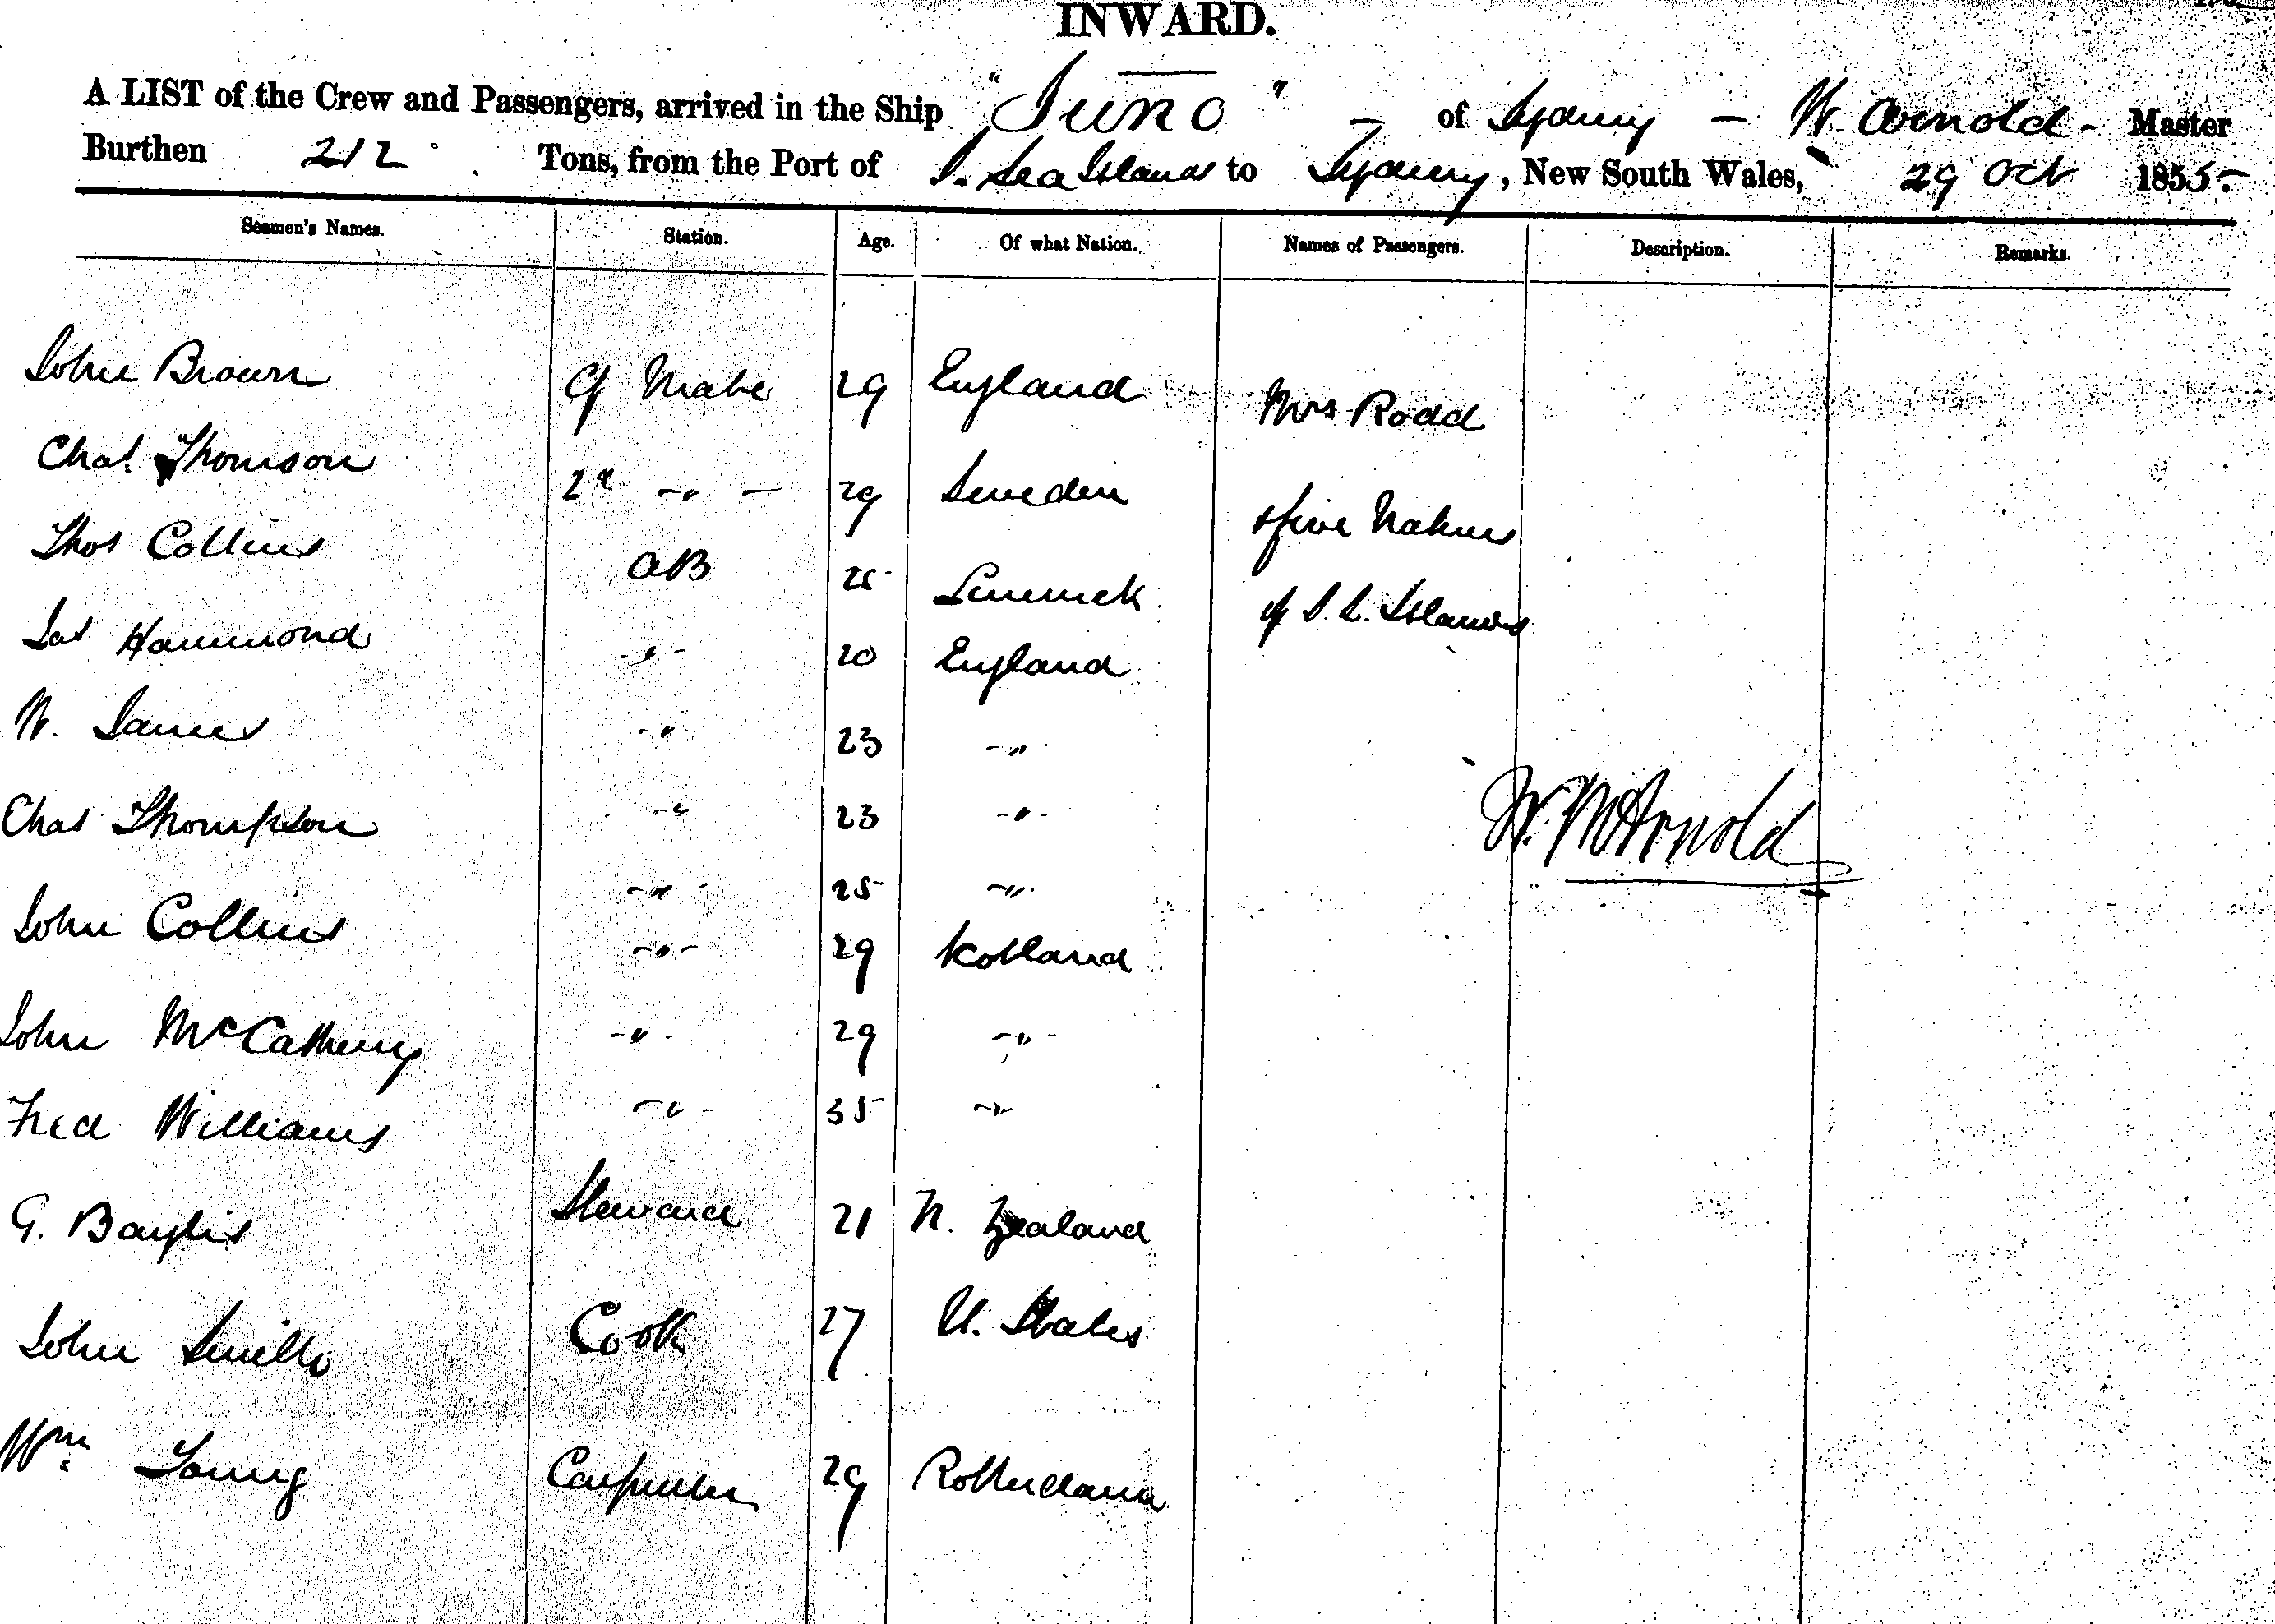 INWARD.
A LIST of the Crew and Passengers, arrived in the Ship "Juno" - of Sydney - W. Arnold - Master
Burthen 212 Tons, from the Port of S. Sea Islands to Sydney, New South Wales, 29 Oct 1855
Seamen's Names. Station. Age. Of what Nation. Names of Passengers. Description. Remarks.
John Brown Cf Mate 29 England Mrs Rodd
Chas. Thomson 2d -"- 29 Sweden + five Natives
Thos Collins AB 25 of S. S. Islands
Jas Hammond -"- 20 England
W. James -" 23 -"-
Chas Thompson -" 23 -"-
W. McArnold
John Collins -"- 25 -"-
-"- 29 Scotland
John McCatheny -"- 29 -"-
Fred Williams -"- 35 -"-
G. Baylis Steward 21 N. Zealand
John Smith Cook 27 U. States
Wm. Young Carpenter 29